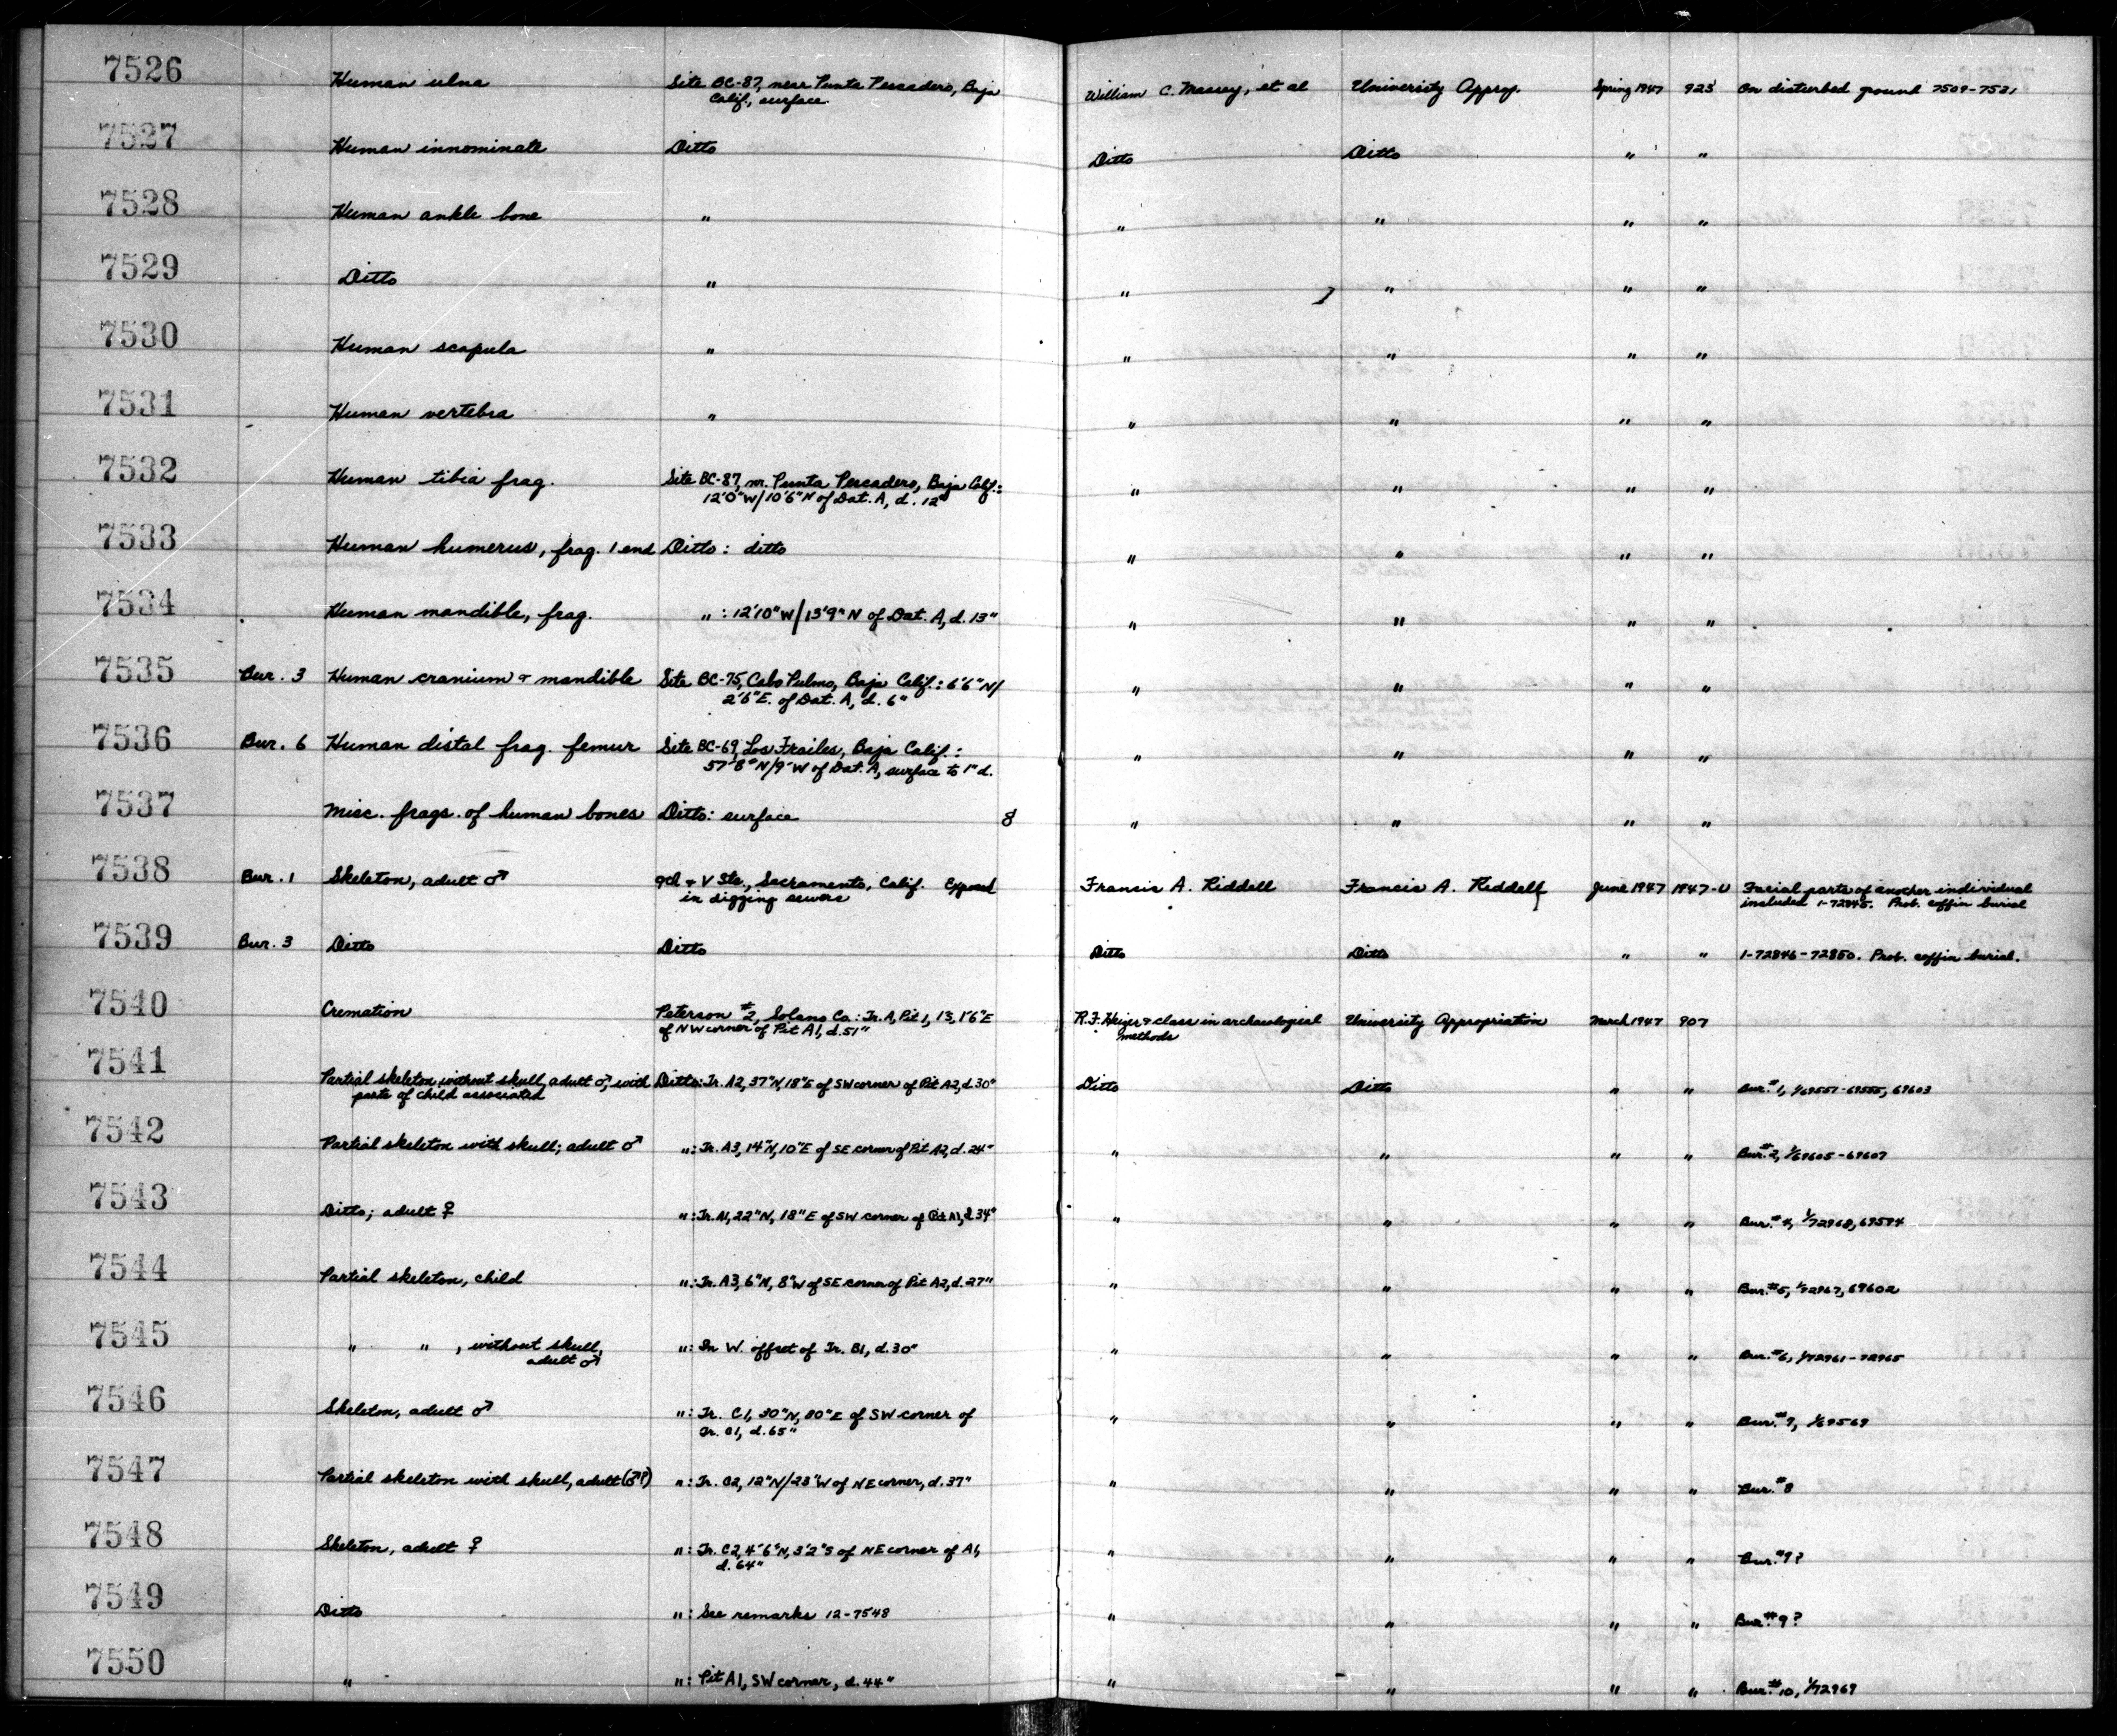 7526 Human ulna Site BC-87, near Punta Pescadero, Baja William C. Massey, et al University Approp. Spring 1947 923 On disturbed ground 7509-7531
Calif., surface
7527 Human innominate Ditto Ditto Ditto " "
7528 Human ankle bone " " " " "
7529 Ditto " " " " "
7530 Human scapula " " " " "
7531 Human vertebra " " " " "
7532 Human tibia frag. Site BC-87, nr. Punta Pescadero, Baja Calif.: " " " "
12'0"W/10'6"N of Dat. A, d. 12"
7533 Human humerus, frag. 1 end Ditto: ditto " " " "
7534 Human mandible, frag. " : 12'10"W/13'9"N of Dat. A, d. 13" " " " "
7535 Bur. 3 Human cranium & mandible Site BC-75, Cabo Pulmo, Baja Calif.: 6'6"N/ " " " "
2'6"E. of Dat. A, d. 6"
7536 Bur. 6 Human distal frag. femur Site BC-69, Los Frailes, Baja Calif.: " " " "
57'8"N/9'W of Dat. A, surface to 1"d.
7537 Misc. frags. of human bones Ditto: surface 8 " " " "
7538 Bur. 1 Skeleton, adult ♂ 9th & V Sts., Sacramento, Calif. Exposed Francis A. Riddell Francis A. Riddell June 1947 1947-U Facial parts of another individual
in digging sewers included 1-72845. Prob. coffin burial
7539 Bur. 3 Ditto Ditto Ditto Ditto " " 1-72846-72850. Prob. coffin burial.
7540 Cremation Peterson #2, Solano Co.: Tr. A, Pit 1, 13, 1'6"E R.F. Heizer & class in archaeological University Appropriation March 1947 907
of NW corner of Pit A1, d. 51" methods
7541 Partial skeleton without skull, adult ♂, with Ditto: Tr. A2, 37"N, 18"E of SW corner of Pit A2, d. 30" Ditto Ditto " " Bur. #1, 1/69551-69555, 69603
parts of child associated
7542 Partial skeleton with skull; adult ♂ ": Tr. A3, 14"N, 10"E of SE corner of Pit A2, d. 24" " " " " Bur. #2, 1/69605-69607
7543 Ditto; adult ♀ ": Tr. A1, 22"N, 18"E of SW corner of Pit A1, d. 34" " " " " Bur. #4, 1/72968, 69594
7544 Partial skeleton, child ": Tr. A3, 6"N, 8"W of SE corner of Pit A2, d. 27" " " " " Bur. #5, 1/72967, 69602
7545 " " , without skull, ": In W. offset of Tr. B1, d. 30" " " " " Bur. #6, 1/72961-72965
adult ♂
7546 Skeleton, adult ♂ ": Tr. C1, 30"N, 80"E of SW corner of " " " " Bur. #7, 1/69569
Tr. C1, d. 65"
7547 Partial skeleton with skull, adult (♂?) ": Tr. C2, 12"N/23"W of NE corner, d. 37" " " " " Bur. #8
7548 Skeleton, adult ♀ ": Tr. C2, 4'6"N, 3'2"S of NE corner of A1, " " " " Bur. #9?
d. 64"
7549 Ditto ": See remarks 12-7548 " " " " Bur. #9?
7550 " ": Pit A1, SW corner, d. 44" " " " " Bur. #10, 1/72969